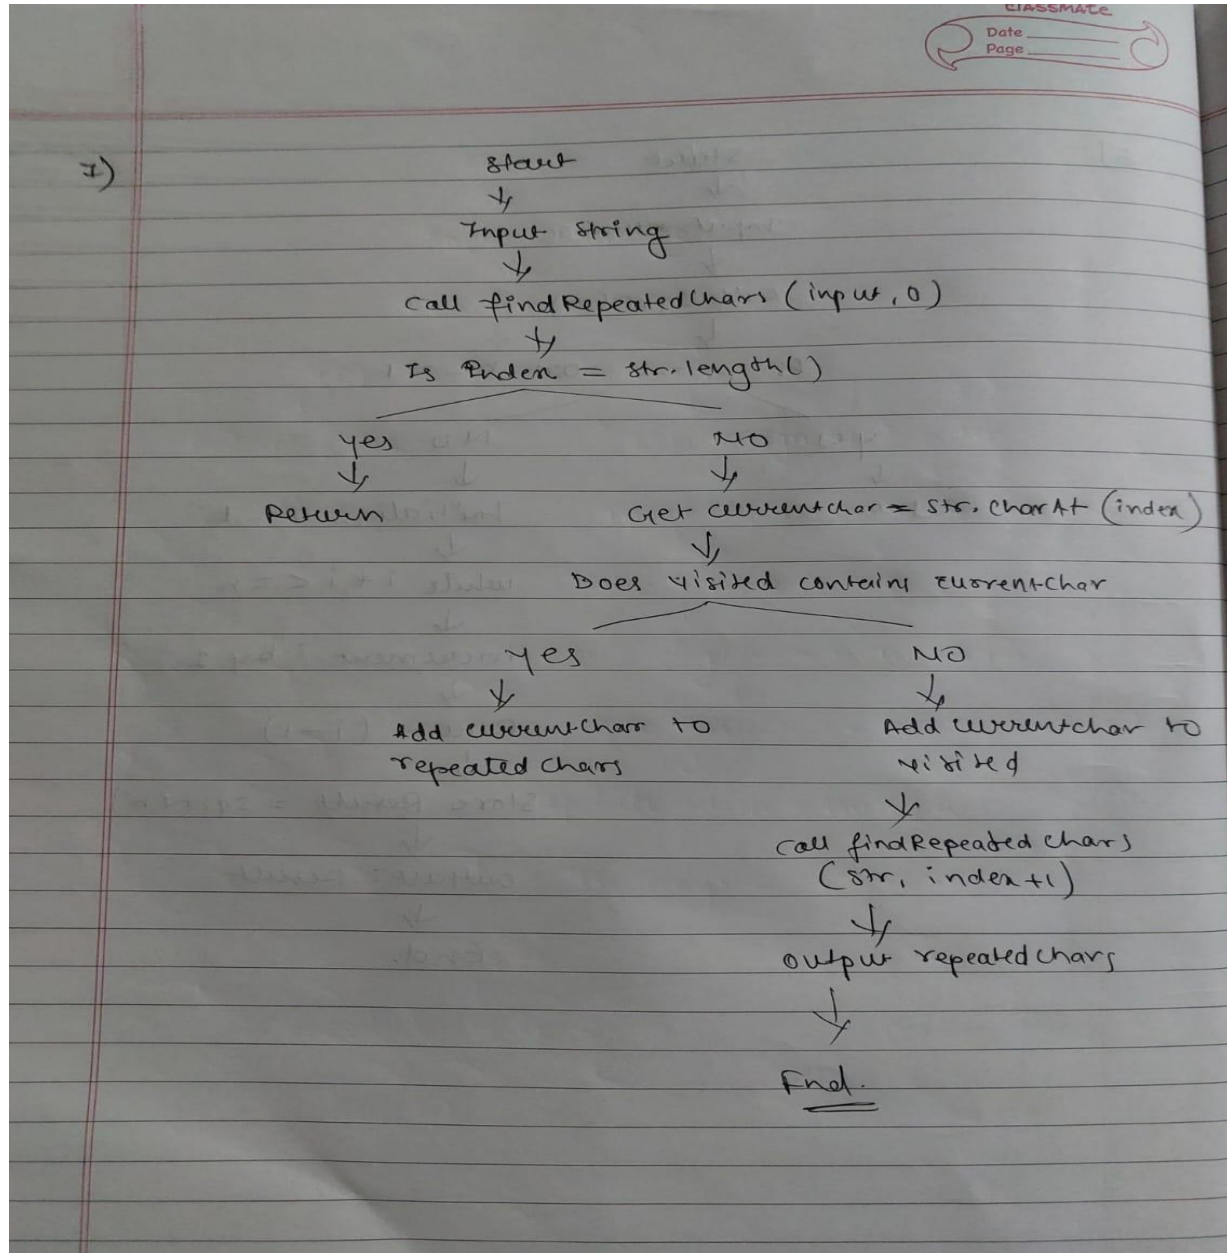 classmate
Date
Page
7)
Start
Input string
call findRepeatedChars (input, 0)
Is Index = str.length()
Yes
NO
Return
Get currentchar = str.charAt (index)
Does visited contains currentchar
Yes
NO
Add currentchar to
repeated chars
Add currentchar to
visited
call findRepeated chars
(str, index+1)
output repeatedchars
End.